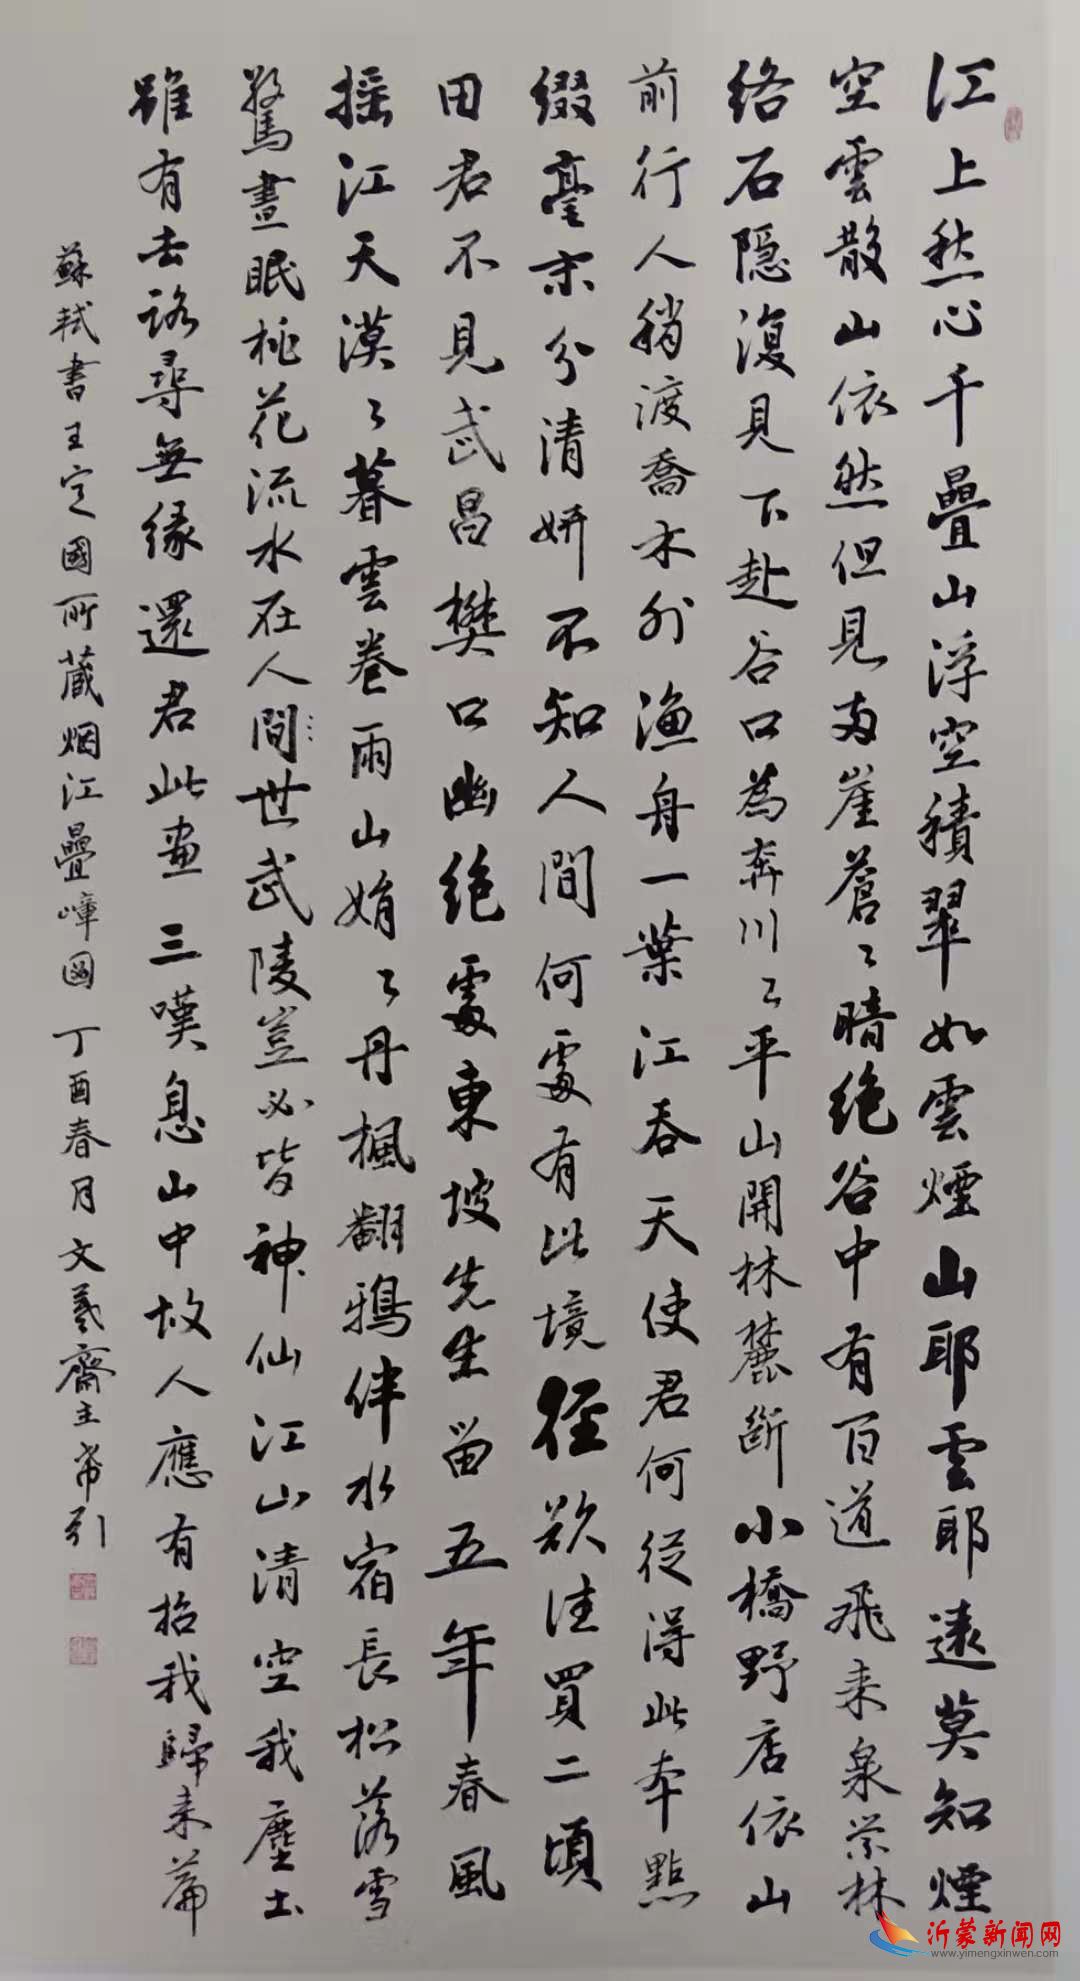 江上愁心千疊山浮空積翠如雲煙山耶雲耶遠莫知煙
空雲散山依然但見两崖蒼〻暗絕谷中有百道飛来泉縈林
絡石隱復見下赴谷口為奔川〻平山開林麓斷小橋野店依山
前行人稍渡喬木外漁舟一葉江吞天使君何從得此本點
綴毫末分清妍不知人間何處有此境徑欲往買二頃
田君不見武昌樊口幽絕處東坡先生留五年春風
搖江天漠〻暮雲卷雨山娟〻丹楓翻鴉伴水宿長松落雪
驚晝眠桃花流水在人間世武陵豈必皆神仙江山清空我塵土
雖有去路尋無緣還君此畫三嘆息山中故人應有招我歸来篇
蘇軾書王定國所藏烟江疊嶂圖 丁酉春月文羲齋主希引
沂蒙新闻网
www.yimengxinwen.com